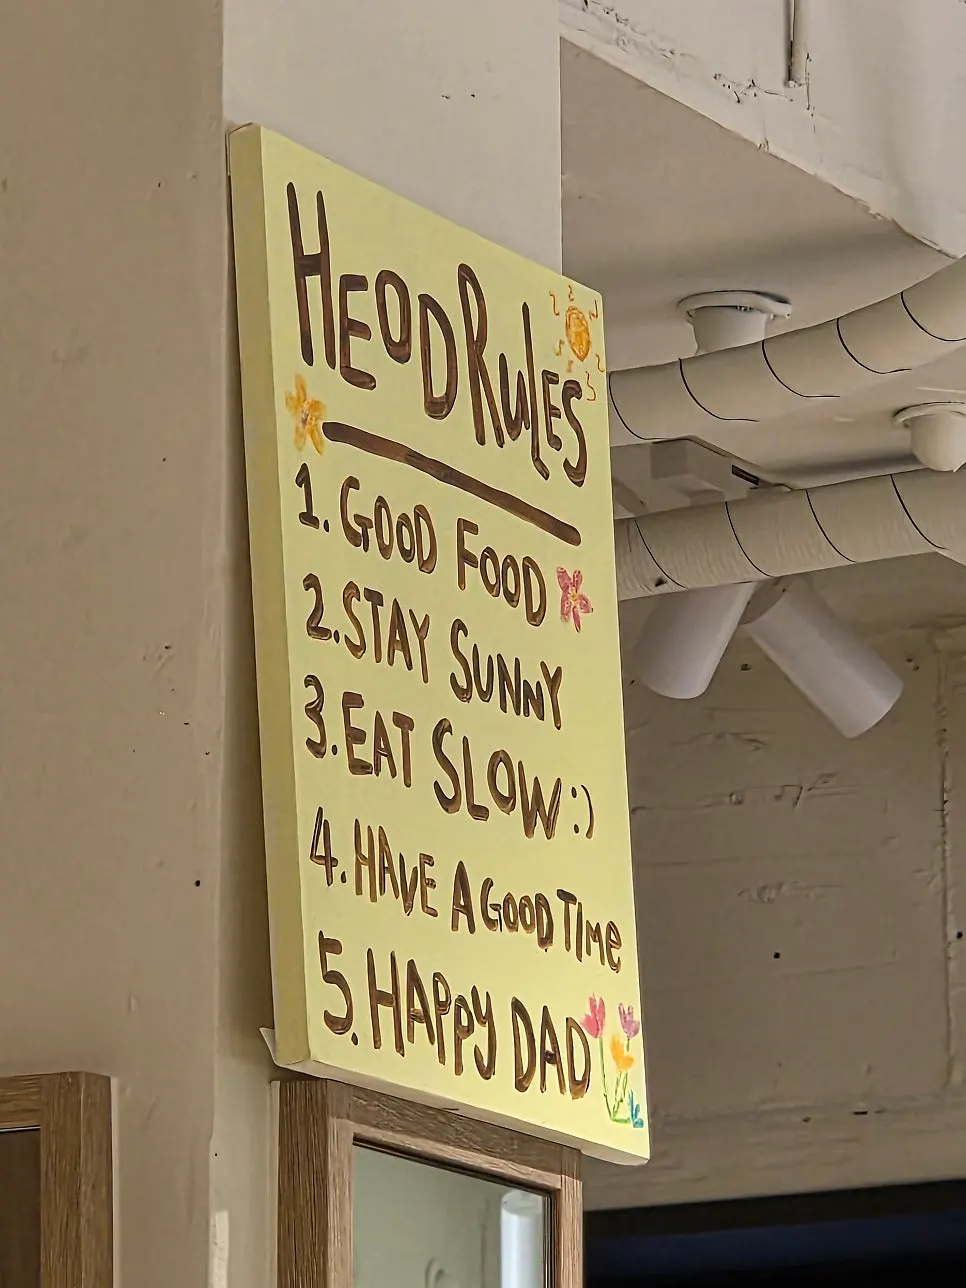 HEOD RULES
1. GOOD FOOD
2. STAY SUNNY
3. EAT SLOW :)
4. HAVE A GOOD TIME
5. HAPPY DAD